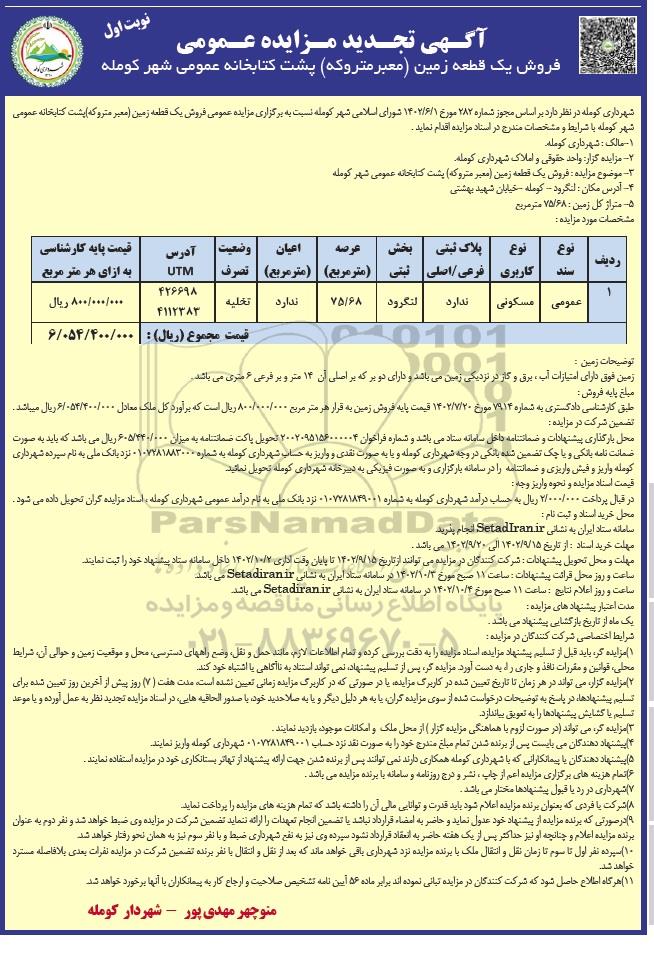 نوبت اول
آگهی تجدید مزایده عمومی
فروش یک قطعه زمین (معبرمتروکه) پشت کتابخانه عمومی شهر کومله
شهرداری کومله در نظر دارد بر اساس مجوز شماره ۲۸۲ مورخ ۱۴۰۲/۶/۱ شورای اسلامی شهر کومله نسبت به برگزاری مزایده عمومی فروش یک قطعه زمین (معبر متروکه)پشت کتابخانه عمومی
شهر کومله با شرایط و مشخصات مندرج در اسناد مزایده اقدام نماید .
۱-مالک : شهرداری کومله.
۲- مزایده گزار: واحد حقوقی و املاک شهرداری کومله.
۳- موضوع مزایده : فروش یک قطعه زمین (معبر متروکه) پشت کتابخانه عمومی شهر کومله
۴- آدرس مکان : لنگرود – کومله –خیابان شهید بهشتی
۵- متراژ کل زمین : ۷۵/۶۸ مترمربع
مشخصات مورد مزایده :
ردیف | نوع سند | نوع کاربری | پلاک ثبتی فرعی/اصلی | بخش ثبتی | عرصه (مترمربع) | اعیان (مترمربع) | وضعیت تصرف | آدرس UTM | قیمت پایه کارشناسی به ازای هر متر مربع
۱ | عمومی | مسکونی | ندارد | لنگرود | ۷۵/۶۸ | ندارد | تخلیه | ۴۲۶۶۹۸ ۴۱۱۲۳۸۳ | ۸۰۰/۰۰۰/۰۰۰ ریال
قیمت مجموع (ریال) : ۶/۰۵۴/۴۰۰/۰۰۰
توضیحات زمین :
زمین فوق دارای امتیازات آب ، برق و گاز در نزدیکی زمین می باشد و دارای دو بر که بر اصلی آن ۱۴ متر و بر فرعی ۶ متری می باشد .
مبلغ پایه فروش :
طبق کارشناسی دادگستری به شماره ۷۹۱۴ مورخ ۱۴۰۲/۷/۲۰ قیمت پایه فروش زمین به قرار هر متر مربع ۸۰۰/۰۰۰/۰۰۰ ریال است که برآورد کل ملک معادل ۶/۰۵۴/۴۰۰/۰۰۰ ریال میباشد .
تضمین شرکت در مزایده :
محل بارگذاری پیشنهادات و ضمانتنامه داخل سامانه ستاد می باشد و شماره فراخوان ۲۰۰۲۰۹۵۱۵۶۰۰۰۰۰۴ تحویل پاکت ضمانتنامه به میزان ۶۰۵/۴۴۰/۰۰۰ ریال می باشد که باید به صورت
ضمانت نامه بانکی و یا چک تضمین شده بانکی در وجه شهرداری کومله و یا به صورت نقدی و واریز به حساب شهرداری کومله به شماره ۰۱۰۷۷۲۸۱۸۸۳۰۰۰ نزد بانک ملی به نام سپرده شهرداری
کومله واریز و فیش واریزی و ضمانتنامه را در سامانه بارگزاری و به صورت فیزیکی به دبیرخانه شهرداری کومله تحویل نمائید.
قیمت اسناد مزایده و نحوه واریز وجه :
در قبال پرداخت ۲/۰۰۰/۰۰۰ ریال به حساب درآمد شهرداری کومله به شماره ۰۱۰۷۷۲۸۱۸۴۹۰۰۱ نزد بانک ملی به نام درآمد عمومی شهرداری کومله ، اسناد مزایده گران تحویل داده می شود .
محل خرید اسناد و ثبت نام :
سامانه ستاد ایران به نشانی SetadIran.ir انجام پذیرد.
مهلت خرید اسناد : از تاریخ ۱۴۰۲/۹/۱۵ الی ۱۴۰۲/۹/۲۰ می باشد .
مهلت و محل تحویل پیشنهادات : شرکت کنندگان در مزایده می توانند ازتاریخ ۱۴۰۲/۹/۱۵ تا پایان وقت اداری ۱۴۰۲/۱۰/۲ داخل سامانه ستاد پیشنهاد خود را ثبت نمایند.
ساعت و روز محل قرائت پیشنهادات : ساعت ۱۱ صبح مورخ ۱۴۰۲/۱۰/۳ در سامانه ستاد ایران به نشانی Setadiran.ir می باشد.
ساعت و روز اعلام نتایج : ساعت ۱۱ صبح مورخ ۱۴۰۲/۱۰/۴ در سامانه ستاد ایران به نشانی Setadiran.ir می باشد.
مدت اعتبار پیشنهاد های مزایده :
یک ماه از تاریخ بازگشایی پیشنهاد می باشد .
شرایط اختصاصی شرکت کنندگان در مزایده :
۱)مزایده گر، باید قبل از تسلیم پیشنهاد مزایده، اسناد مزایده را به دقت بررسی کرده و تمام اطلاعات لازم، مانند حمل و نقل، وضع راههای دسترسی، محل و موقعیت زمین و حوالی آن، شرایط
محلی، قوانین و مقررات نافذ و جاری را، به دست آورد. مزایده گر، پس از تسلیم پیشنهاد، نمی تواند استناد به ناآگاهی یا اشتباه خود کند.
۲)مزایده گزار، می تواند در هر زمان تا تاریخ تعیین شده در کاربرگ مزایده، یا در صورتی که در کاربرگ مزایده زمانی تعیین نشده است، مدت هفت ( ۷) روز پیش از آخرین روز تعیین شده برای
تسلیم پیشنهادها، در پاسخ به توضیحات درخواست شده از سوی مزایده گران، یا به هر دلیل دیگر و یا به صلاحدید خود، با صدور الحاقیه هایی، در اسناد مزایده تجدید نظر به عمل آورده و یا موعد
تسلیم یا گشایش پیشنهادها را به تعویق بیاندازد.
۳)مزایده گر، می تواند (در صورت لزوم با هماهنگی مزایده گزار ) از محل ملک و امکانات موجود، بازدید نمایند .
۴)پیشنهاد دهندگان می بایست پس از برنده شدن تمام مبلغ مندرج خود را به صورت نقد نزد حساب ۰۱۰۷۷۲۸۱۸۴۹۰۰۱ شهرداری کومله واریز نمایند.
۵)پیشنهاد دهندگان یا پیمانکارانی که با شهرداری کومله همکاری دارند نمی توانند پس از برنده شدن جهت ارائه پیشنهاد از تهاتر بستانکاری خود در مزایده استفاده نمایند .
۶)تمام هزینه های برگزاری مزایده اعم از چاپ ، نشر و درج روزنامه و سامانه با برنده مزایده می باشد .
۷)شهرداری در رد یا قبول پیشنهادها مختار می باشد .
۸)شرکت یا فردی که بعنوان برنده مزایده اعلام شود باید قدرت و توانایی مالی آن را داشته باشد که تمام هزینه های مزایده را پرداخت نماید.
۹)درصورتی که برنده مزایده از پیشنهاد خود عدول نماید و حاضر به امضاء قرارداد نباشد یا تضمین انجام تعهدات را ارائه ننماید تضمین شرکت در مزایده وی ضبط خواهد شد و نفر دوم به عنوان
برنده مزایده اعلام و چنانچه او نیز حداکثر پس از یک هفته حاضر به انعقاد قرارداد نشود سپرده وی نیز به نفع شهرداری ضبط و با نفر سوم نیز به همان نحو رفتار خواهد شد.
۱۰)سپرده نفر اول تا سوم تا زمان نقل و انتقال ملک با برنده مزایده نزد شهرداری باقی خواهد ماند که بعد از نقل و انتقال با نفر برنده تضمین شرکت در مزایده نفرات بعدی بلافاصله مسترد
خواهد شد.
۱۱)هرگاه اطلاع حاصل شود که شرکت کنندگان در مزایده تبانی نموده اند برابر ماده ۵۶ آیین نامه تشخیص صلاحیت و ارجاع کار به پیمانکاران با آنها برخورد خواهد شد.
منوچهر مهدی پور – شهردار کومله
ParsNamadData
پایگاه اطلاع رسانی مناقصه و مزایده
۰۲۱-۸۸۳۴۹۶۷۰-۵